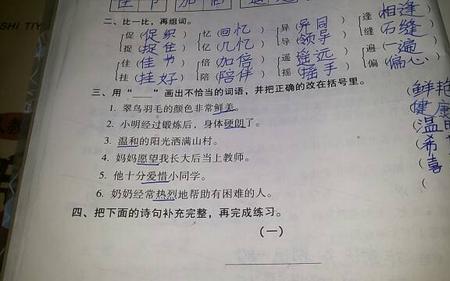 二、比一比,再组词。
促(促织) 忆(回忆) 异(异同) 逢(相逢)
捉(捉住) 亿(几亿) 导(领导) 缝(石缝)
佳(佳节) 倍(加倍) 遥(遥远) 遍(一遍)
挂(挂好) 陪(陪伴) 摇(摇手) 偏(偏心)
三、用“____”画出不恰当的词语,并把正确的改在括号里。
1. 翠鸟羽毛的颜色非常鲜美。 (鲜艳
2. 小明经过锻炼后,身体硬朗了。 (健康
3. 温和的阳光洒满山村。 (温
4. 妈妈愿望我长大后当上教师。 (希
5. 他十分爱惜小同学。 (喜
6. 奶奶经常热烈地帮助有困难的人。 (
四、把下面的诗句补充完整,再完成练习。
(一)